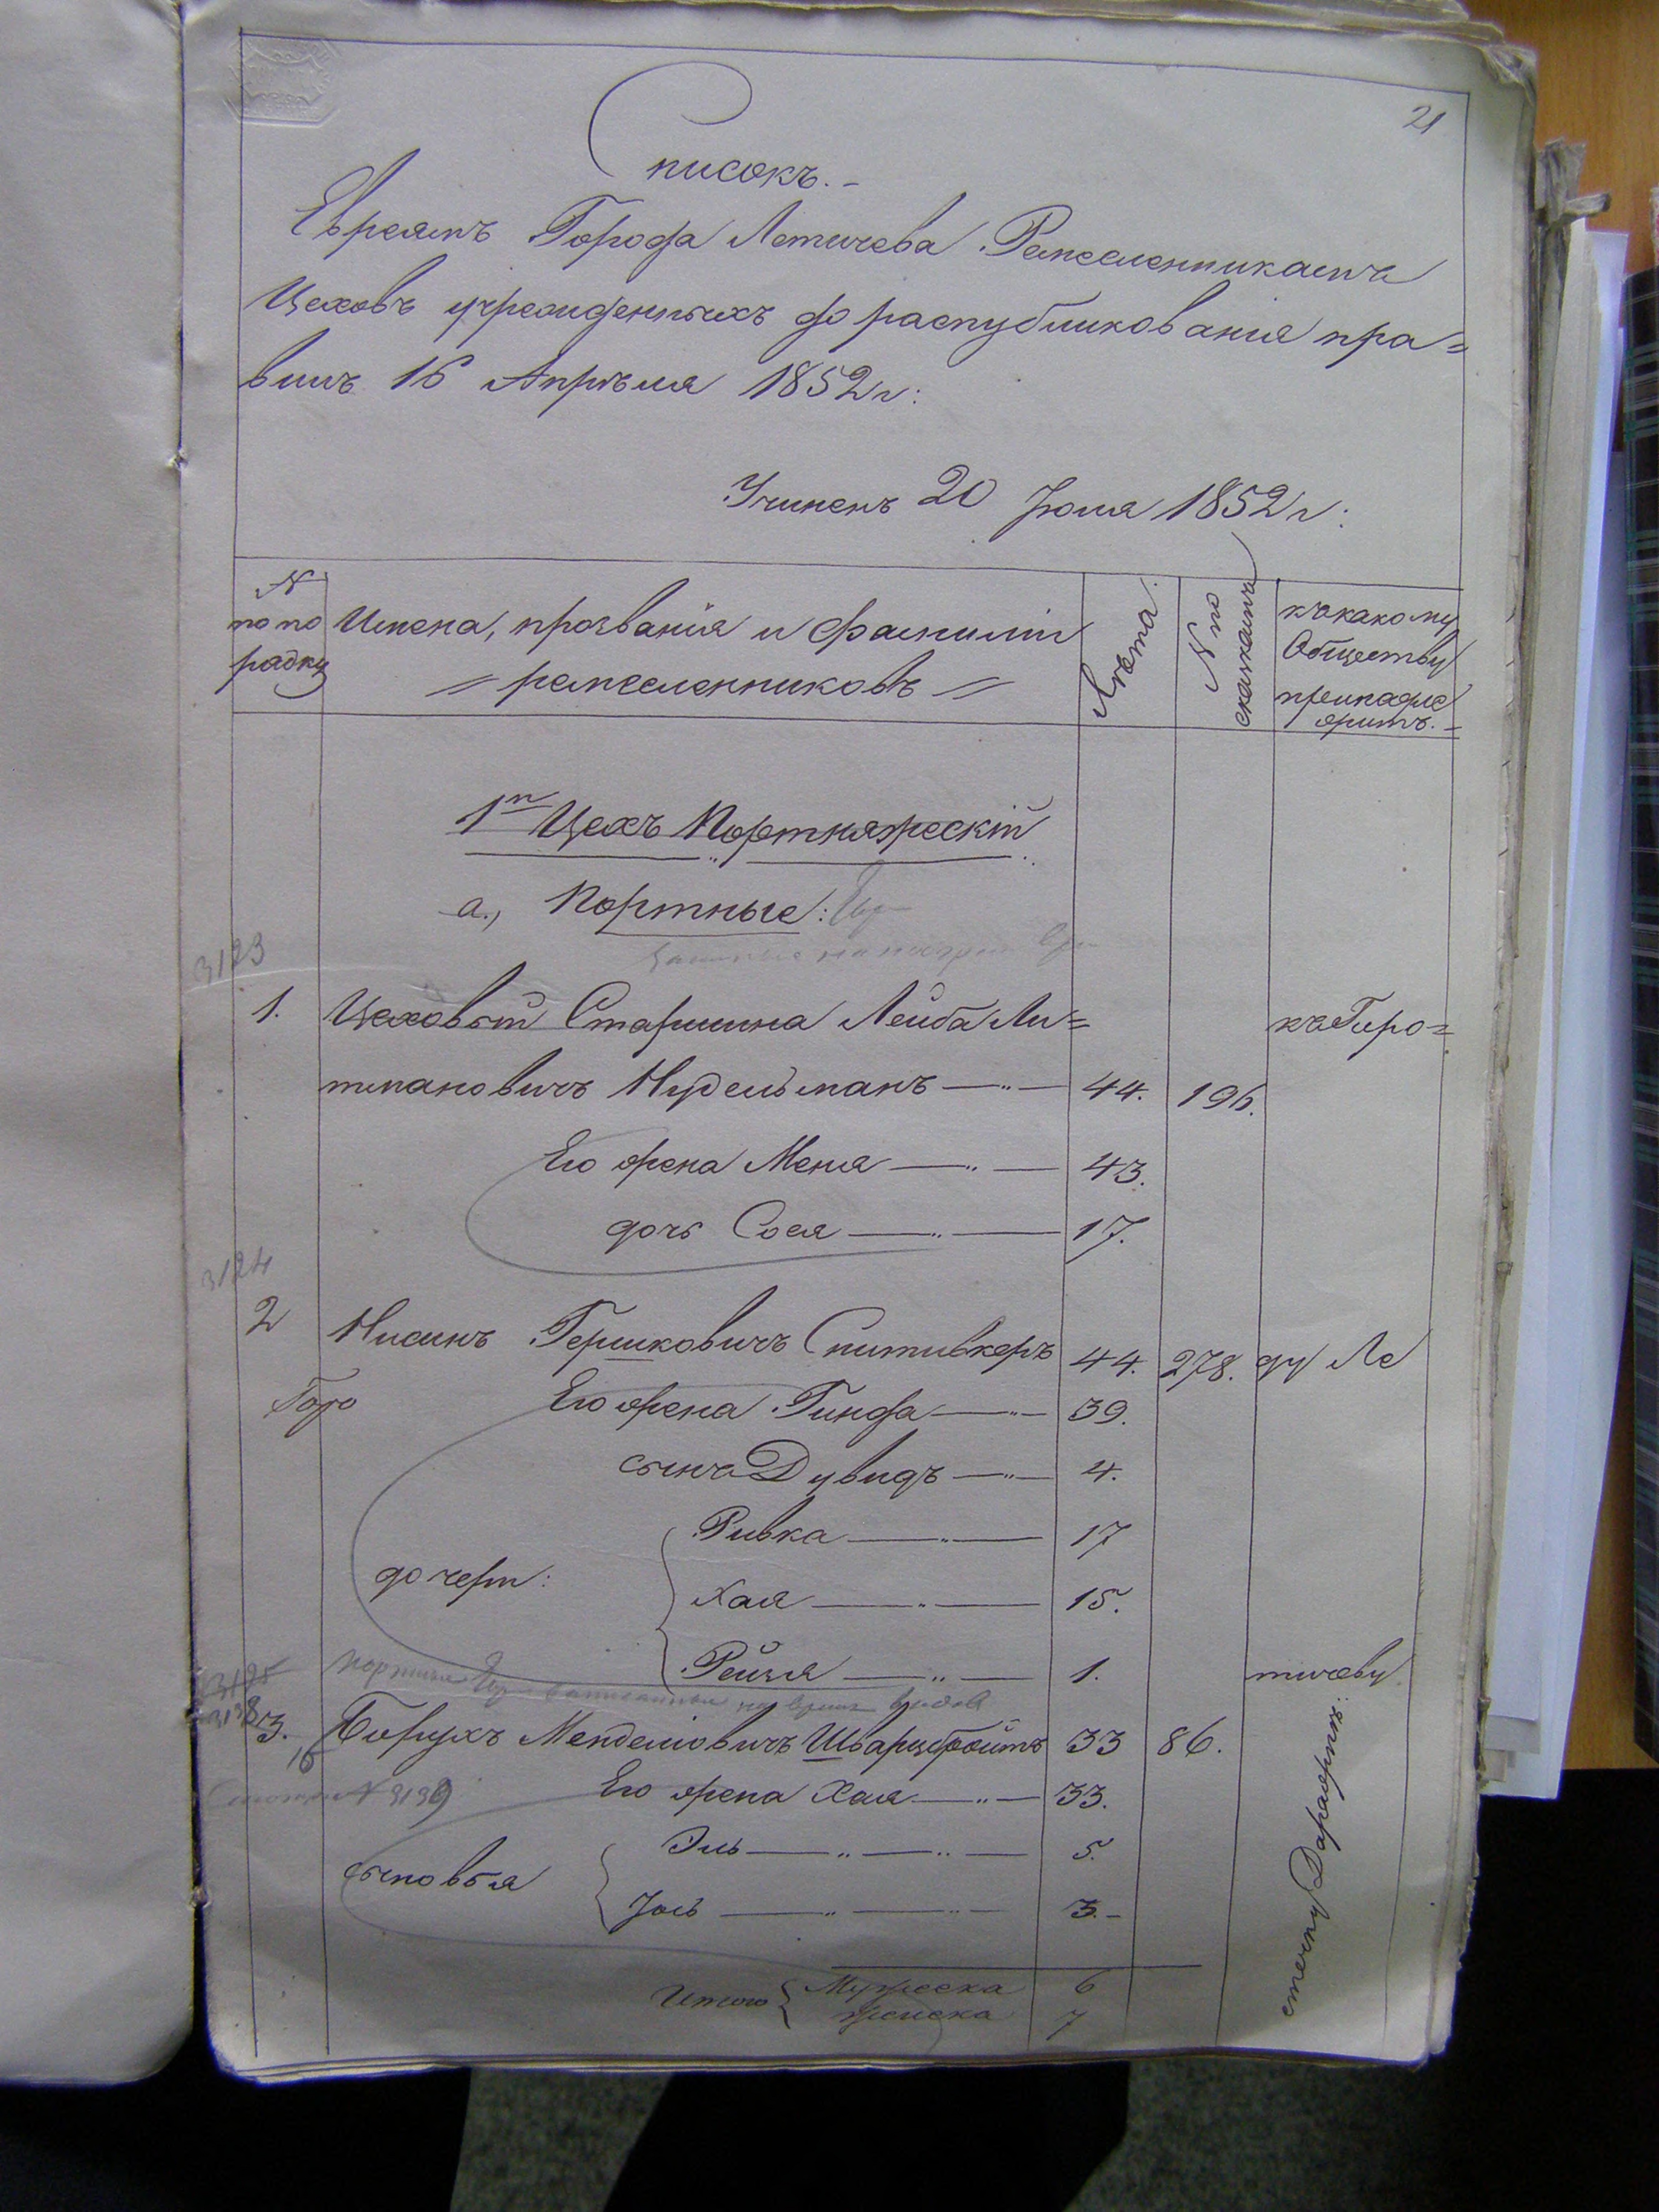 21
Списокъ.-
Евреямъ Города Летичева Ремесленникамъ
Цеховъ учрежденныхъ до распубликованія пра=
вилъ 16 Апрѣля 1852 г:
Учиненъ 20 Іюля 1852 г:
N по по рядку
Имена, прозванія и фамиліи
= ремесленниковъ =
Лѣта.
N по сказкамъ
къ какому
Обществу
принадле
житъ.-
1й Цехъ Портняжескій
а., Портные:
3123
1. Цеховый Старшина Лейба Ли= къ Горо=
тмановичъ Нудельманъ —„— 44. 196.
Его жена Меня —„— 43.
дочь Сося —„— 17.
3124
2 Нисинъ Гершковичъ Спитивкеръ 44. 278. ду Ле
Горо Его жена Гинда —„— 39.
сынъ Дувидъ —„— 4.
Ривка —„— 17
дочери: Хая —„— 15.
Рейзя —„— 1. тичеву
3125
3. Борухъ Менделіовичъ Шварцбойтъ 33 86.
16
Его жена Хая —„— 33.
Эль —„—„— 5.
сыновья
Іось —„—„— 3.-
Итого { Мужеска 6
женска 7